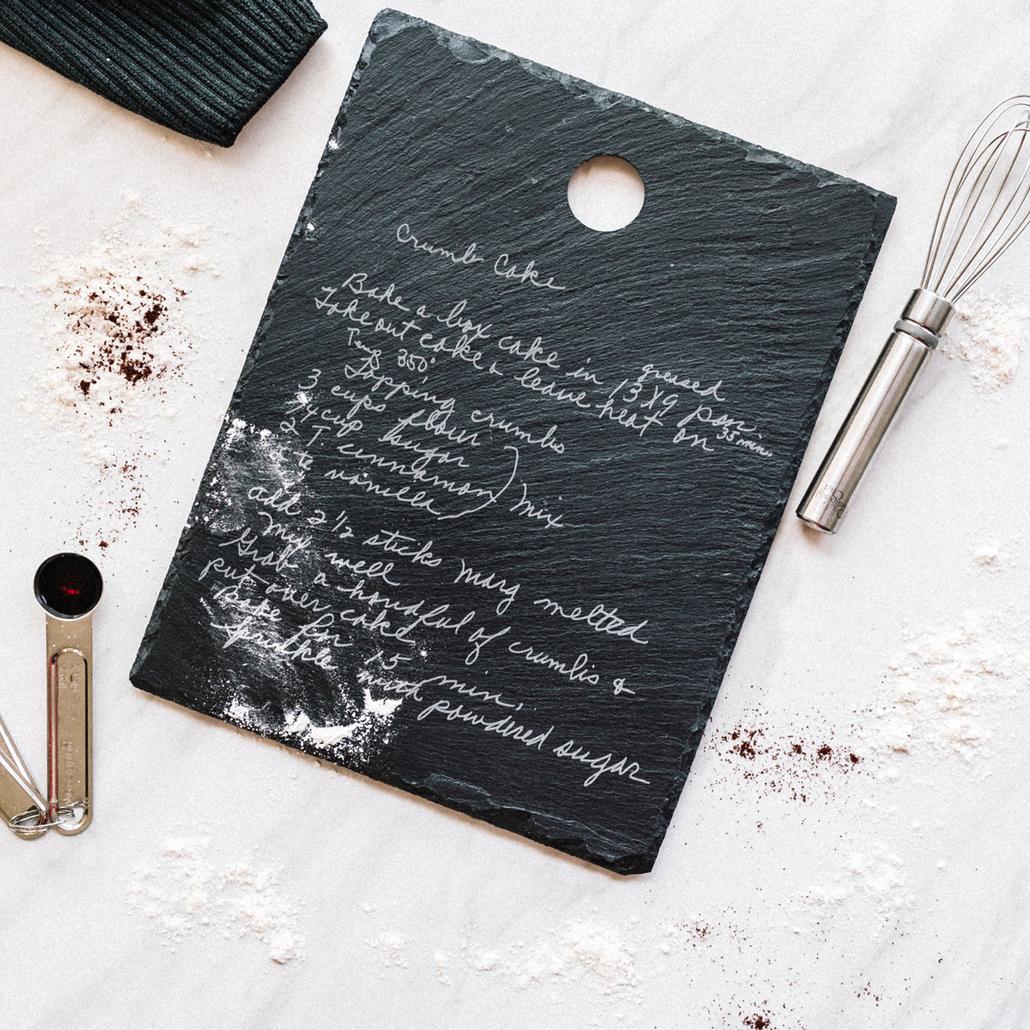 Crumb Cake
Bake a box cake in greased 13X9 pan.
Take out cake & leave heat on 35 min.
Temp 350°
Topping crumbs
3 cups flour
3/4 cup sugar
2 T. cinnamon
vanilla
Mix
add 2 1/2 sticks marg melted
Mix well
Grab a handful of crumbs &
put over cake
Bake for 15 min,
Sprinkle with powdered sugar